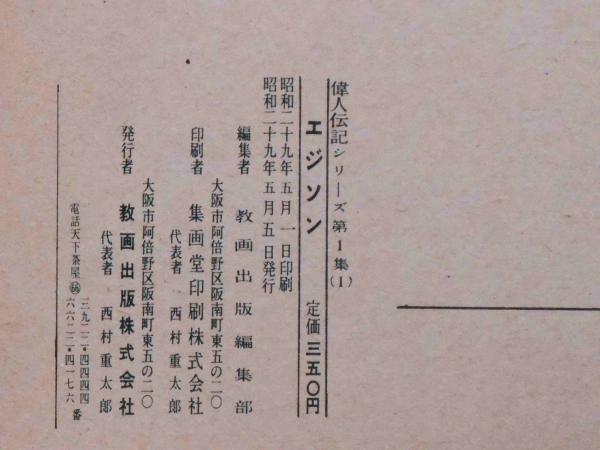 偉人伝記シリーズ第1集(1)
エジソン 定価 三五〇円
昭和二十九年五月一日印刷
昭和二十九年五月五日発行
編集者 教画出版編集部
大阪市阿倍野区阪南町東五の二〇
印刷者 集画堂印刷株式会社
代表者 西村重太郎
大阪市阿倍野区阪南町東五の二〇
発行者 教画出版株式会社
代表者 西村重太郎
電話天下茶屋(66) 三九二二・四四四四
六六二二・四一七六番